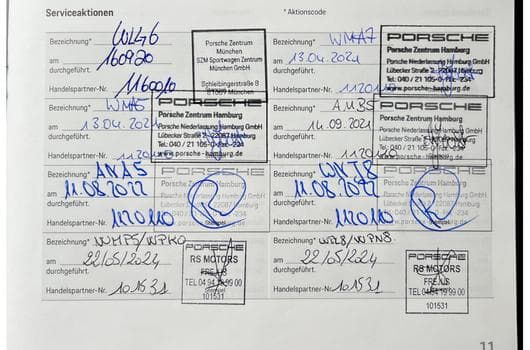 Serviceaktionen
* Aktionscode
Bezeichnung* WLG6
am 160920
durchgeführt.
Handelspartner-Nr. 1160010
Porsche Zentrum
München
SZM Sportwagen Zentrum
München GmbH
Schleibingerstraße 8
81669 München
Bezeichnung* WMA7
am 13.04.2021
durchgeführt.
Handelspartner-Nr.
Porsche Zentrum Hamburg
Porsche Niederlassung Hamburg GmbH
Lübecker Straße 2 · 22087 Hamburg
Tel.: 040 / 21 105-0 · Fax: -234
www.porsche-hamburg.de
Bezeichnung* WMA5
am 13.04.2021
durchgeführt.
Handelspartner-Nr.
PORSCHE
Porsche Zentrum Hamburg
Porsche Niederlassung Hamburg GmbH
Lübecker Straße 2 · 22087 Hamburg
Tel.: 040 / 21 105-0 · Fax: -234
www.porsche-hamburg.de
Bezeichnung* AMB5
am 14.09.2021
durchgeführt.
Handelspartner-Nr.
PORSCHE
Porsche Zentrum Hamburg
Porsche Niederlassung Hamburg GmbH
Bezeichnung* ANA5
am 11.08.2022
durchgeführt.
Handelspartner-Nr. 1120110
PORSCHE
Porsche Zentrum Hamburg
Bezeichnung* WNT8
am 11.08.2022
durchgeführt.
Handelspartner-Nr. 1120110
PORSCHE
Porsche Zentrum Hamburg
Bezeichnung* WMP5/WPK0
am 22/05/2024
durchgeführt.
Handelspartner-Nr. 101531
PORSCHE
RS MOTORS
FREJUS
TEL 04 94 19 99 00
101531
Bezeichnung* WRB/WPN8
am 22/05/2024
durchgeführt.
Handelspartner-Nr. 101531
PORSCHE
RS MOTORS
FREJUS
TEL 04 94 19 99 00
101531
11